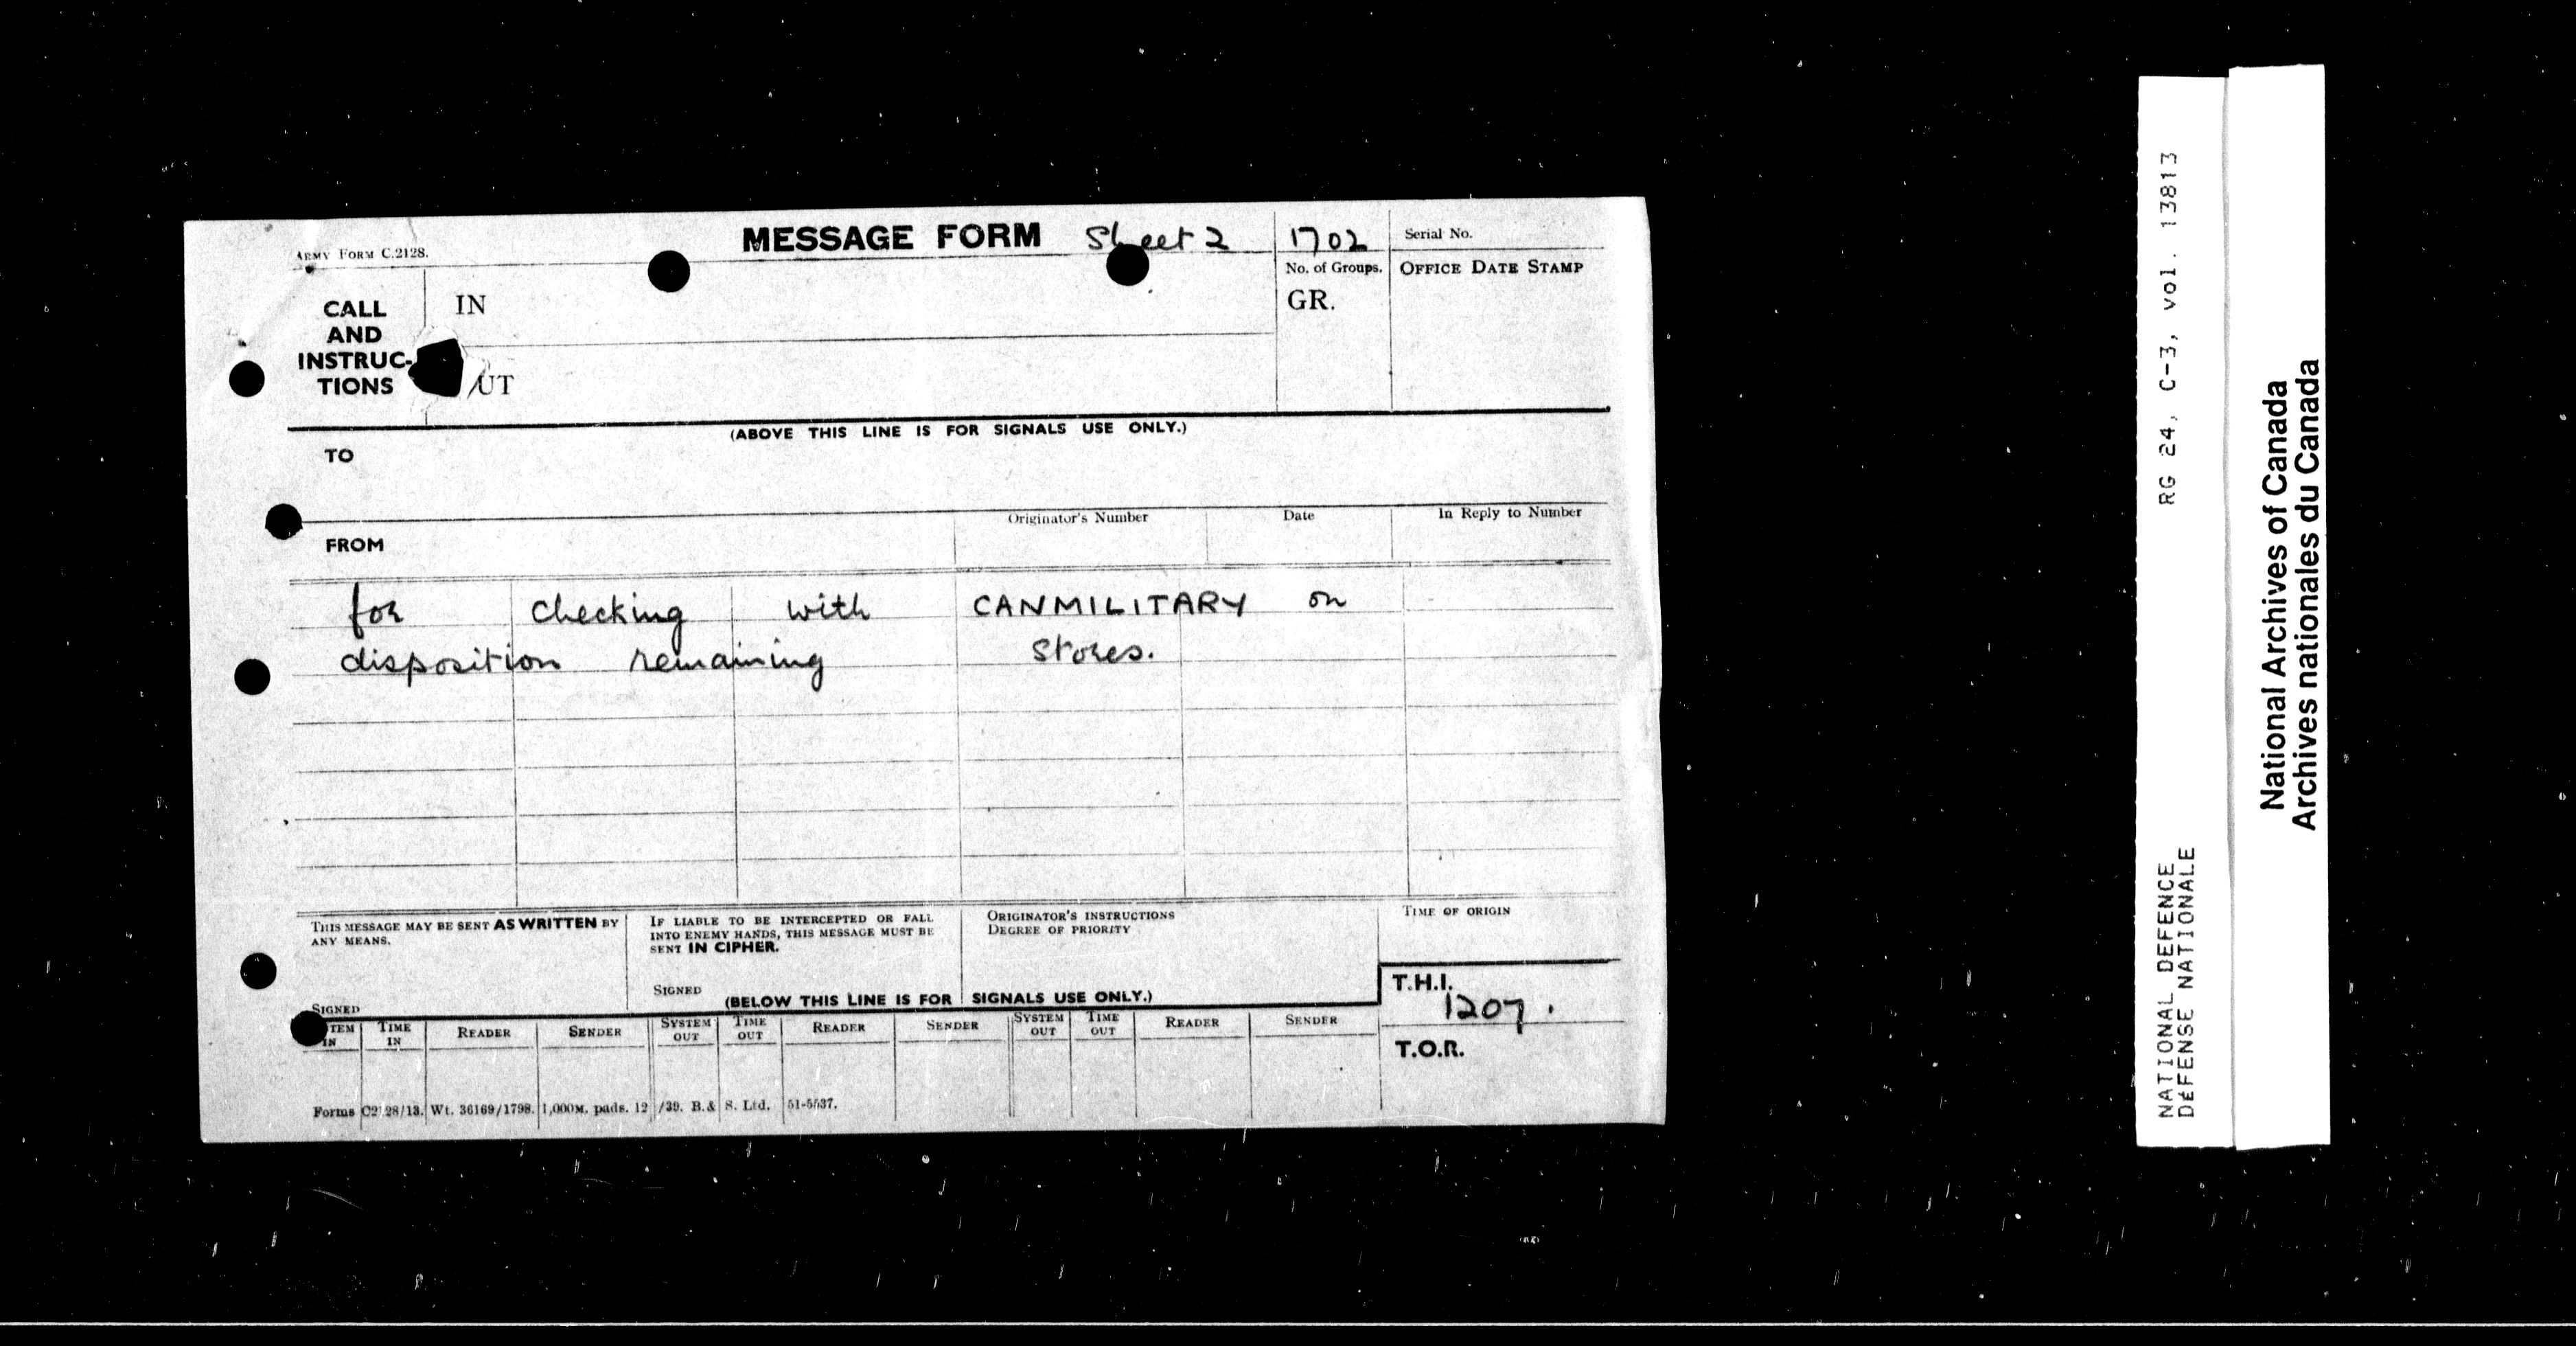 ARMY FORM C.2128.
MESSAGE FORM Sheet 2
1702
Serial No.
No. of Groups.
OFFICE DATE STAMP
CALL
AND
INSTRUC-
TIONS
IN
GR.
UT
(ABOVE THIS LINE IS FOR SIGNALS USE ONLY.)
TO
Originator's Number
Date
In Reply to Number
FROM
for checking with CANMILITARY on
disposition remaining stores.
THIS MESSAGE MAY BE SENT AS WRITTEN BY
ANY MEANS.
SIGNED
IF LIABLE TO BE INTERCEPTED OR FALL
INTO ENEMY HANDS, THIS MESSAGE MUST BE
SENT IN CIPHER.
SIGNED
ORIGINATOR'S INSTRUCTIONS
DEGREE OF PRIORITY
TIME OF ORIGIN
(BELOW THIS LINE IS FOR SIGNALS USE ONLY.)
T.H.I.
1207.
T.O.R.
TEM IN
TIME IN
READER
SENDER
SYSTEM OUT
TIME OUT
READER
SENDER
SYSTEM OUT
TIME OUT
READER
SENDER
Forms C2128/13. Wt. 36169/1798. 1,000M. pads. 12/39. B.& S. Ltd. 51-5537.
NATIONAL DEFENCE RG 24, C-3, vol. 13813
DÉFENSE NATIONALE
National Archives of Canada
Archives nationales du Canada